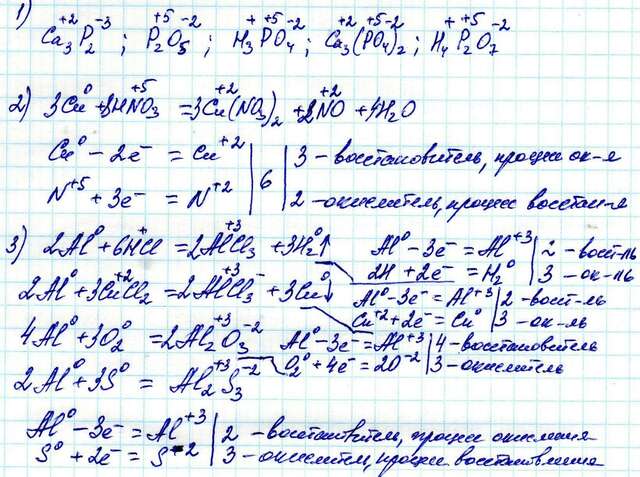 1) Ca₃⁺²P₂⁻³ ; P₂⁺⁵O₅⁻² ; H₃⁺P⁺⁵O₄⁻² ; Ca₃⁺²(P⁺⁵O₄⁻²)₂ ; H₄⁺P₂⁺⁵O₇⁻²
2) 3Cu⁰ + 8HN⁺⁵O₃ = 3Cu⁺²(NO₃)₂ + 2N⁺²O + 4H₂O
Cu⁰ - 2e⁻ = Cu⁺² | 6 | 3 - восстановитель, процесс ок-я
N⁺⁵ + 3e⁻ = N⁺² | 2 - окислитель, процесс восстан-я
3) 2Al⁰ + 6H⁺Cl = 2Al⁺³Cl₃ + 3H₂⁰↑ Al⁰ - 3e⁻ = Al⁺³ | 2 - восст-ль
2H + 2e⁻ = H₂⁰ | 3 - ок-ль
2Al⁰ + 3Cu⁺²Cl₂ = 2Al⁺³Cl₃⁻ + 3Cu⁰↓ Al⁰ - 3e⁻ = Al⁺³ | 2 - восст-ль
Cu⁺² + 2e⁻ = Cu⁰ | 3 - ок-ль
4Al⁰ + 3O₂⁰ = 2Al₂⁺³O₃⁻² Al⁰ - 3e⁻ = Al⁺³ | 4 - восстановитель
O₂⁰ + 4e⁻ = 2O⁻² | 3 - окислитель
2Al⁰ + 3S⁰ = Al₂⁺³S₃⁻²
Al⁰ - 3e⁻ = Al⁺³ | 2 - восстановитель, процесс окисления
S⁰ + 2e⁻ = S⁻² | 3 - окислитель, процесс восстановления